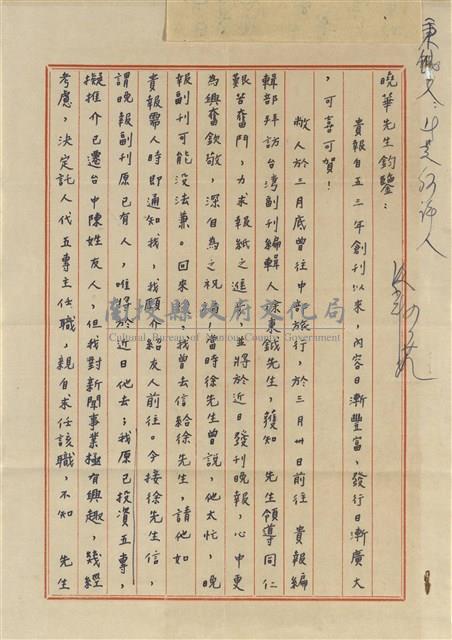 曉華先生鈞鑒：
貴報自五三年創刊以來，內容日漸豐富，發行日漸廣大
，可喜可賀！
敝人於三月底曾往中部旅行，於三月卅日前往 貴報編
輯部拜訪台灣副刊編輯人徐東鉞先生，獲知 先生領導同仁
艱苦奮鬥，力求報紙之進，將於近日發刊晚報，心中更
為興奮欽敬，深自為之祝，當時徐先生曾說，他太忙，晚
報副刊可能沒法兼。回來，我曾去信給徐先生，請他如
貴報需人時即通知我，我願介給友人前往。今接徐先生信，
謂晚報副刊原已有人，唯將於近日他去；我原已投資五專，
擬推介已遷台中陳姓友人，但我對新聞事業極有興趣，幾經
考慮，決定託人代五專主任職，親自求任該職，不知 先生
南投縣政府文化局
Cultural Bureau of Nantou County Government